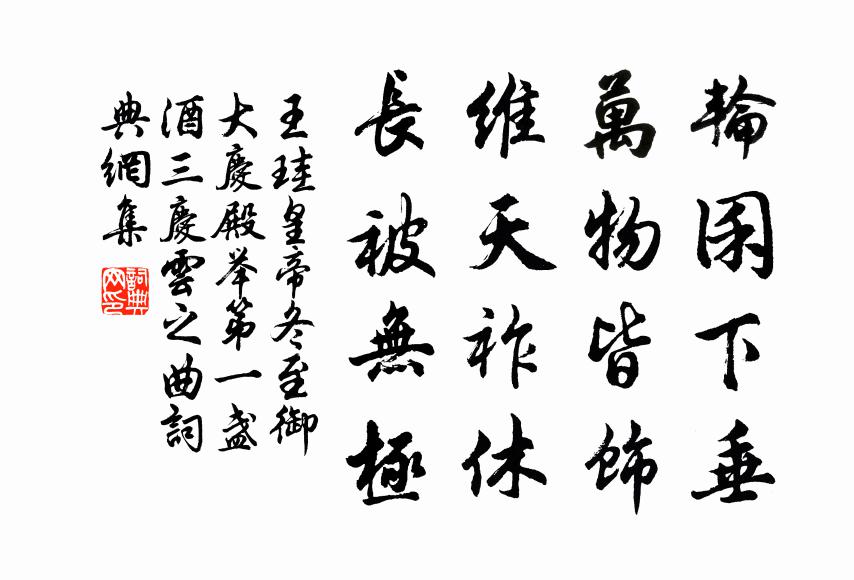 輪囷下垂
萬物皆飾
維天祚休
長被無極
王珪皇帝冬至御
大慶殿举第一盏
酒三慶雲之曲詞
典網集
詞典
网印